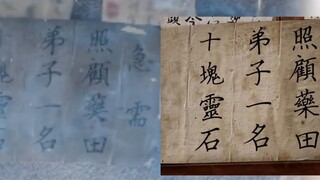 急需
照顧藥田
弟子一名
照顧藥田
弟子一名
十塊靈石